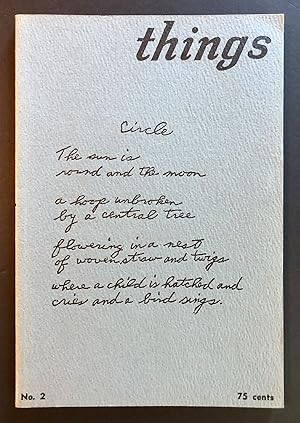 things
Circle
The sun is
round and the moon
a hoop unbroken
by a central tree
flowering in a nest
of woven straw and twigs
where a child is hatched and
cries and a bird sings.
No. 2 75 cents